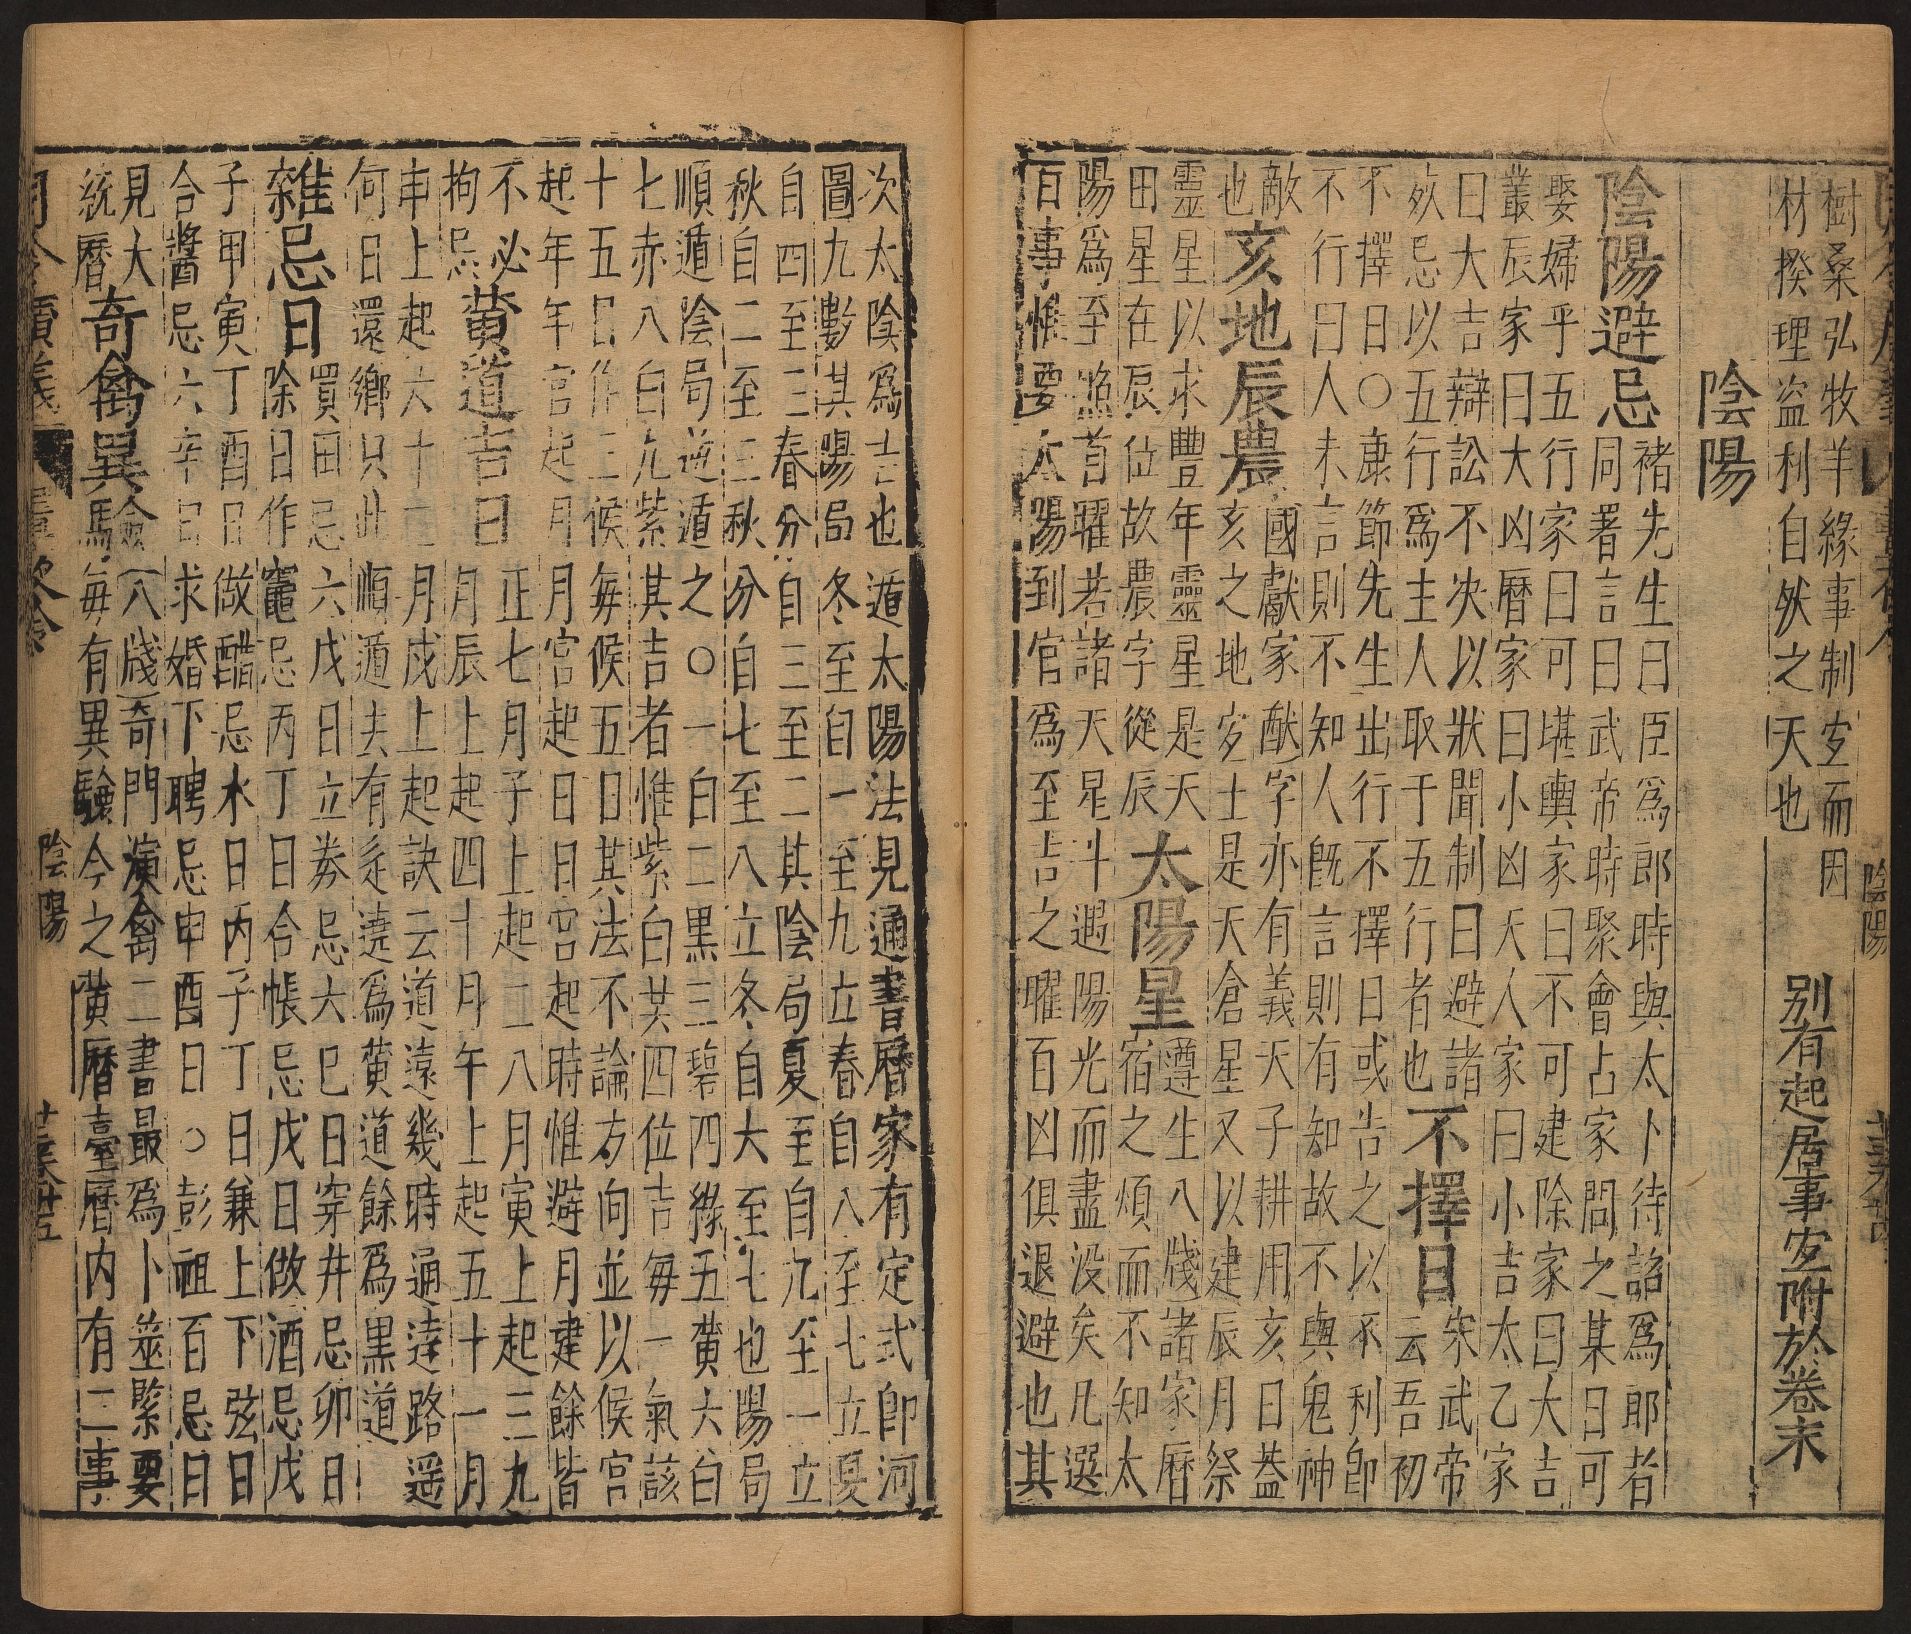 樹桑弘牧羊緣事制宜而因
材揆理盜利自然之天也
別有起居事宜附於卷末
陰陽
陰陽避忌
褚先生曰臣爲郎時與太卜待詔爲郎者
同署言曰武帝時聚會占家問之某日可
娶婦乎五行家曰可堪輿家曰不可建除家曰大吉
叢辰家曰大凶曆家曰小凶天人家曰小吉太乙家
曰大吉辯訟不決以狀聞制曰避諸
死忌以五行爲主人取于五行者也
不擇日
宋武帝
云吾初
不擇日○康節先生出行不擇日或告之以不利卽
不行曰人未言則不知人旣言則有知故不與鬼神
敵
也
亥地辰農
國獻家猷字亦有義天子耕用亥日葢
亥之地宜士是天倉星又以建辰月祭
靈星以求豐年靈星是天
田星在辰位故農字從辰
太陽星
遵生八牋諸家曆
宿之煩而不知太
陽爲至㷖首曜若諸天星斗遇陽光而盡没矣凡選
百事惟要太陽到官爲至吉之曜百凶俱退避也其
陰陽
次太陰爲吉也遁太陽法見通書曆家有定式卽河
圖九數其陽局冬至自一至九立春自八至七立夏
自四至三春分自三至二其陰局夏至自九至一立
秋自二至三秋分自七至八立冬自大至七也陽局
順遁陰局逆遁之○一白二黑三碧四綠五黄六白
七赤八白九紫其吉者惟紫白其四位吉每一氣該
十五日作三候每候五日其法不論方向並以候宮
起年年宮起月月宮起日日宮起時惟避月建餘皆
不必
拘忌
黄道吉日
正七月子上起二八月寅上起三九
月辰上起四十月午上起五十一月
申上起六十二月戌上起訣云道遠幾時通達路遥
何日還鄉只此順遁夫有走遶爲黄道餘爲黑道
雜忌日
買田忌六戊日立券忌六巳日穿井忌卯日
除日作竈忌丙丁日合帳忌戊日做酒忌戊
子甲寅丁酉日做醋忌水日丙子丁日兼上下弦日
合醬忌六辛日求婚下聘忌申酉日○彭祖百忌日
見大
統曆
奇禽異騐
八牋奇門演禽二書最爲卜筮緊要
每有異驗今之黄曆臺曆内有二事
陰陽